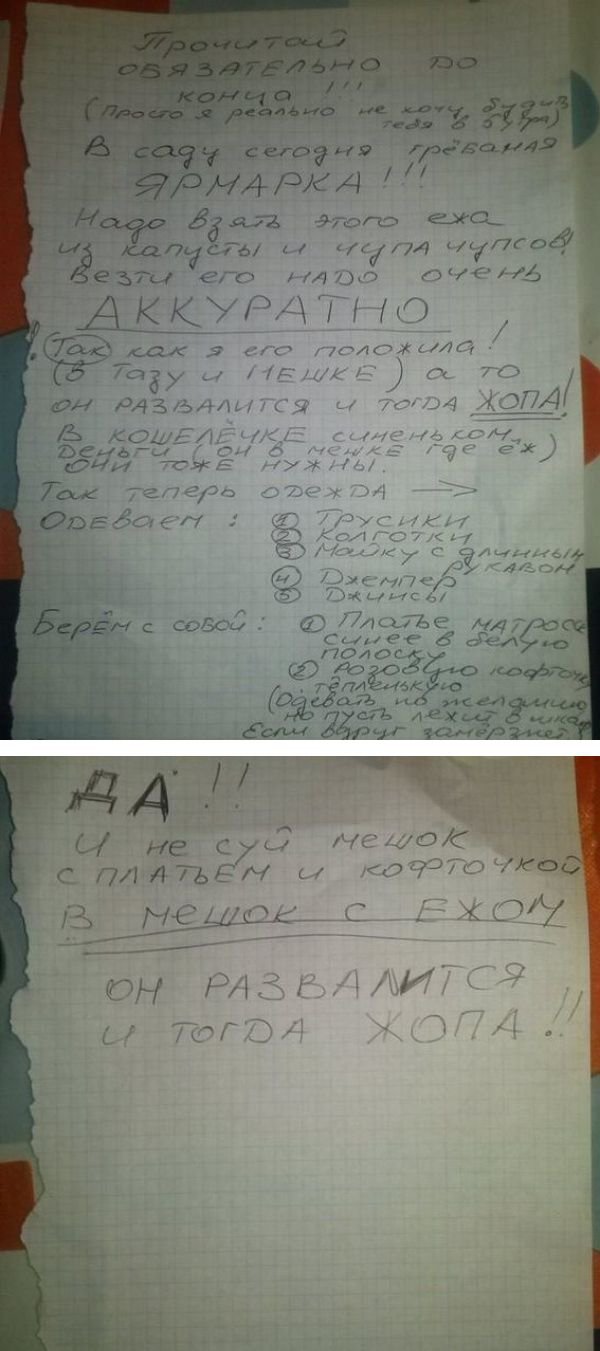 Прочитай
ОБЯЗАТЕЛЬНО ДО
конца!!!
(Просто я реально не хочу будить
тебя в 5 утра)
В саду сегодня грёбаная
ЯРМАРКА!!!
Надо взять этого ежа
из капусты и чупа чупсов!
Везти его НАДО очень
АККУРАТНО
! Так как я его положила!
(В Тазу и МЕШКЕ) а то
ОН РАЗВАЛИТСЯ и тогда ЖОПА!
В КОШЕЛЁЧКЕ синеньком
деньги (он в мешке где ёж)
ОНИ ТОЖЕ НУЖНЫ.
Так теперь одежда →
Одеваем: ① Трусики
② Колготки
③ Майку с длинным
рукавом
④ Джемпер
⑤ Джинсы
Берём с собой: ① Платье матроск
синее в белую
полоску
② Розовую кофточку
тёпленькую
(Одевать по желанию,
но пусть лежит в шкаф
Если вдруг замёрзнет)
ДА!!
И не суй мешок
с ПЛАТЬЕМ и кофточкой
В МЕШОК С ЕЖОМ
ОН РАЗВАЛИТСЯ
и тогда ЖОПА!!